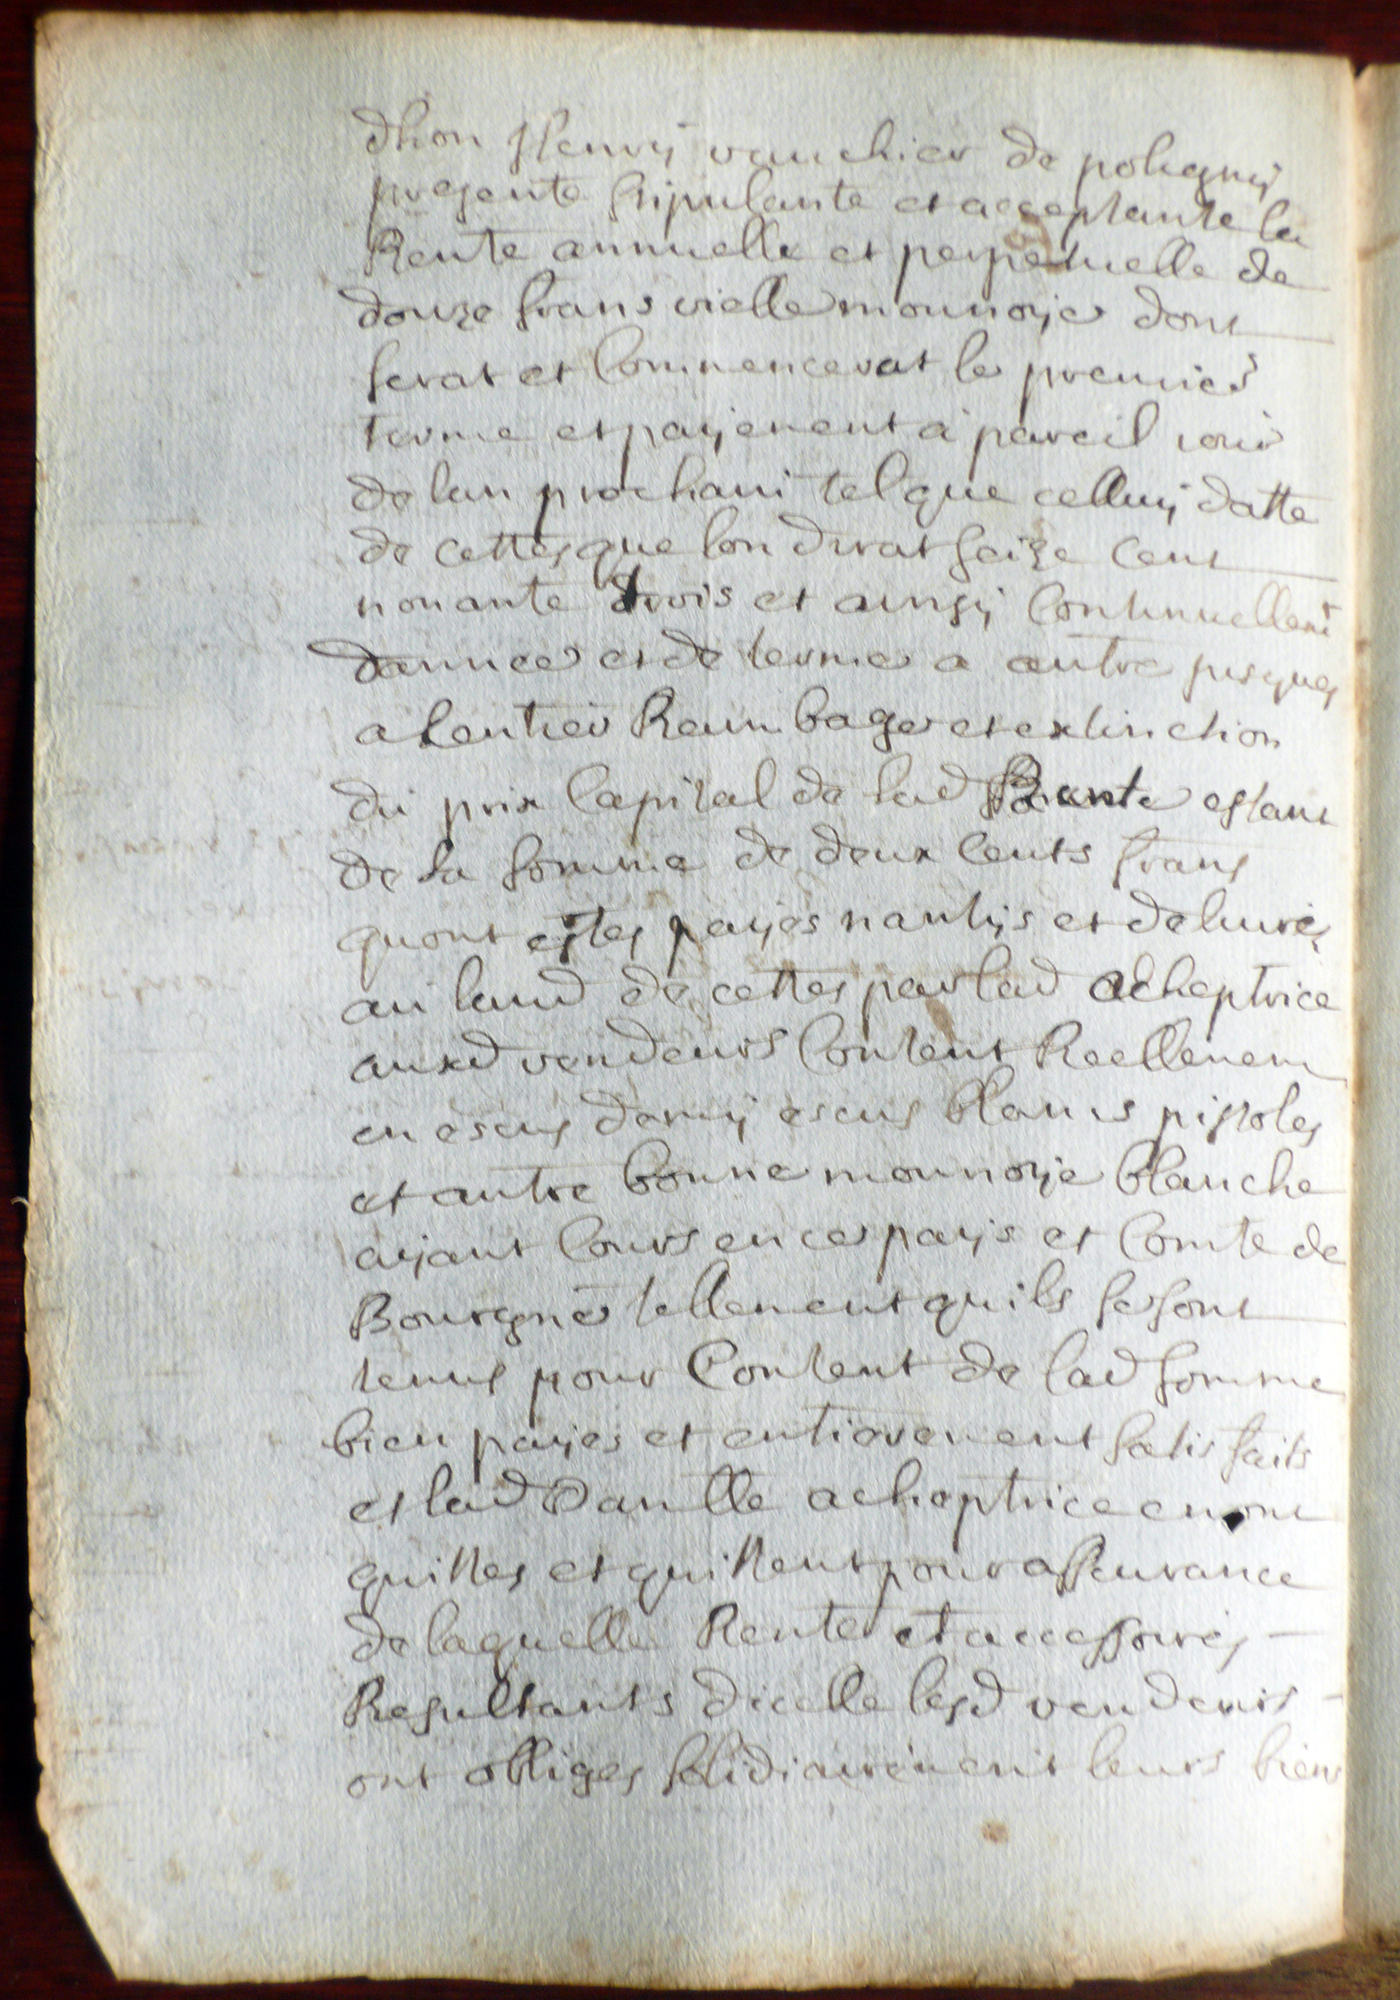 dhon henry vauchier de poligny
presente stipulante et acceptante la
Rente annuelle et perpetuelle de
douze frans vielle monnoye dont
serat et Commencerat le premier
terme et payement a pareil iour
de lan prochain tel que celluy datte
de cettes que lon dirat seize Cent
nonante trois et ainsy Continuellemt
dannee et de terme a autre jusques
a lentier Raimbage et extinction
du prix Capital de lad Rente estant
de la somme de deux Cents frans
quont estes payes nantys et deliures
au laud de cettes par lad acheptrice
auxd vendeurs Content Reellement
en escus demy escus blancs pistoles
et autre bonne monnoye blanche
ayant Cours en ce pays et Comte de
Bourgne tellement quils se sont
tenus pour Content de lad somme
bien payes et entierement satisfaits
et lad Danlle acheptrice en ont
quittes et quittent pour asseurance
de laquelle Rente et accessoires
Resultants dicelle lesd vendeurs
ont obliges solidiairement leurs biens